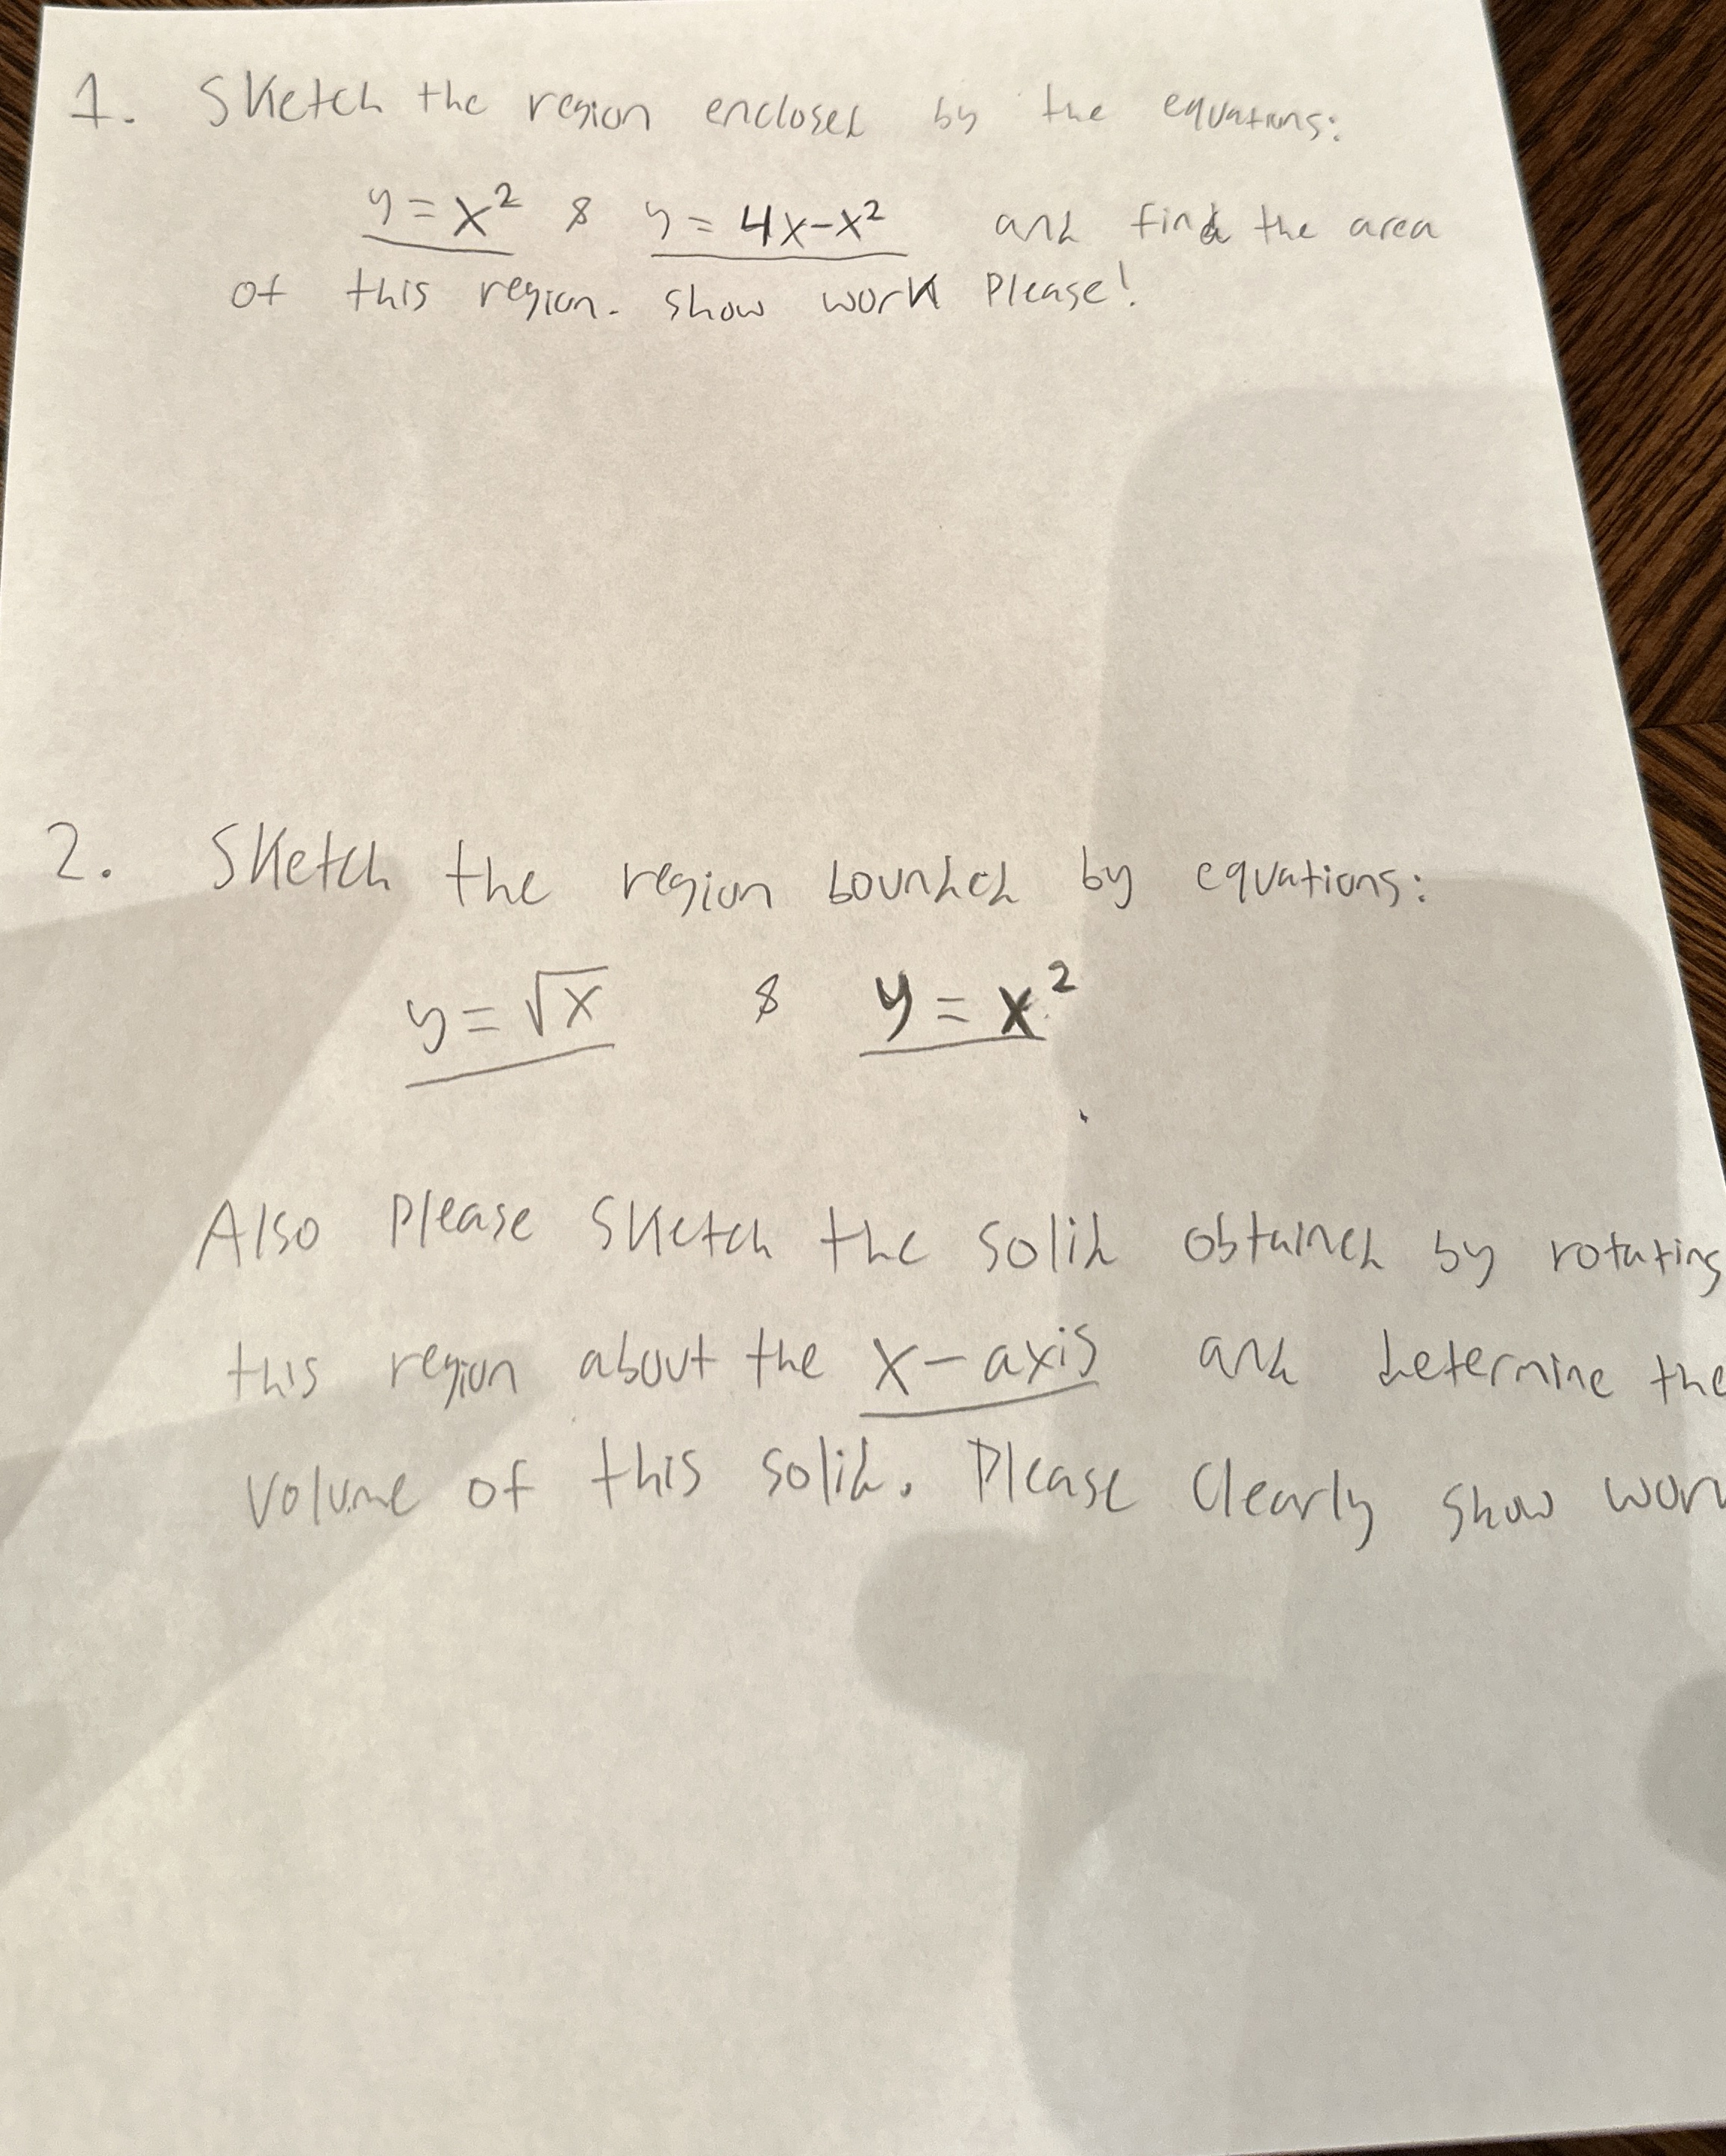 1. Sketch the region enclosed by the equations:
y = x² & y = 4x-x² and find the area
of this region. show work Please!
2. Sketch the region bounded by equations:
y = √x & y = x²
Also Please Sketch the solid obtained by rotating
this region about the x-axis and determine the
volume of this solid. Please Clearly show work